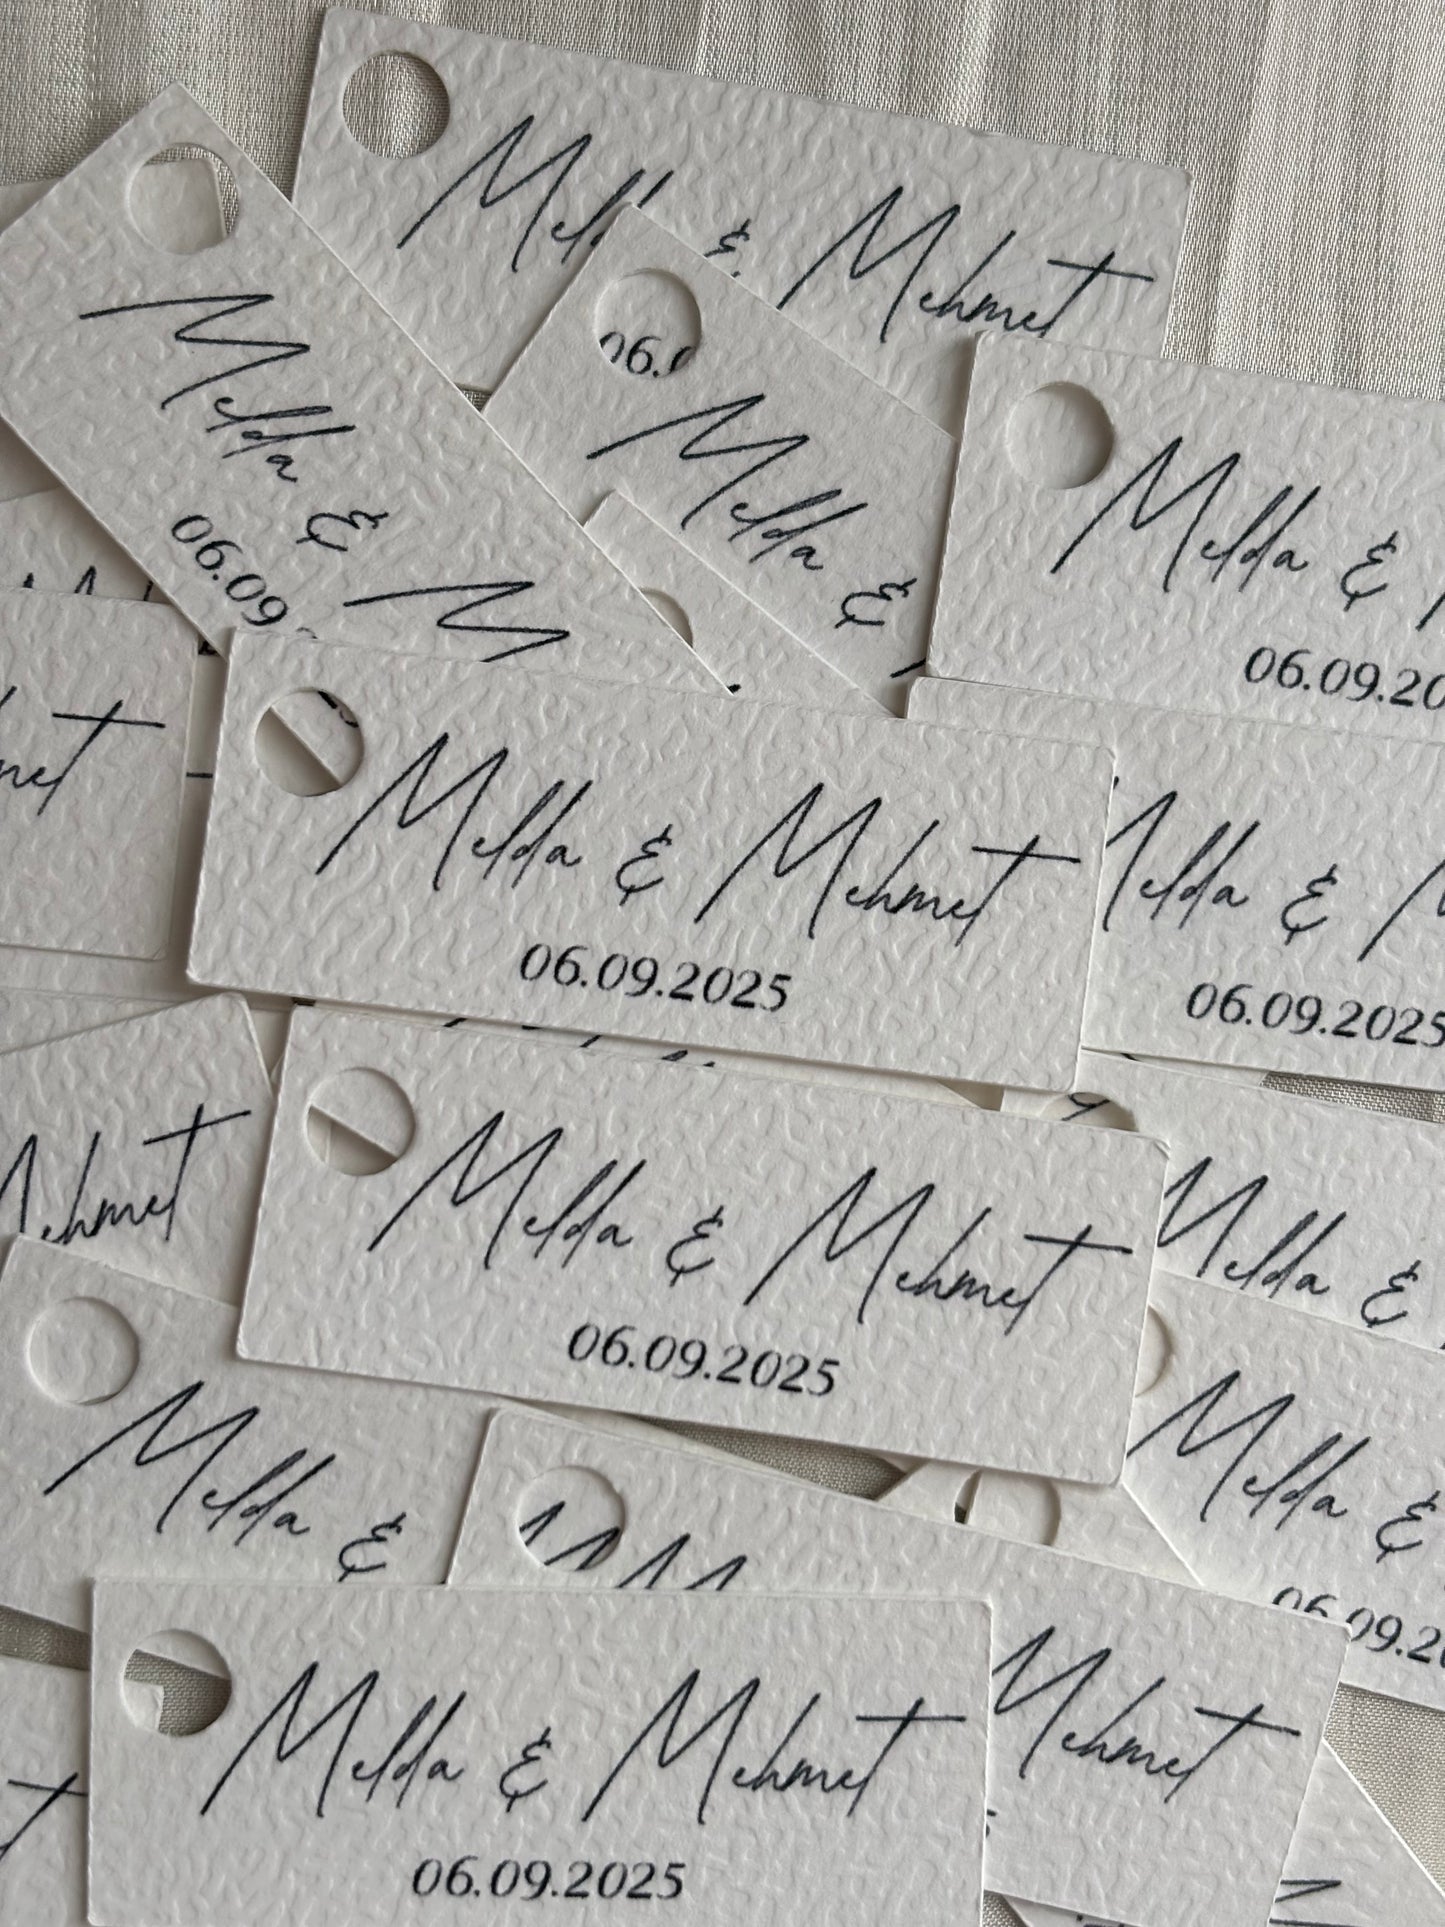 Melda & Mehmet
06.0
Melda &
06.09.
Melda &
Melda &
06.09.20
Melda & Mehmet
06.09.2025
Melda &
06.09.2025
Mehmet
Melda & Mehmet
06.09.2025
Melda &
Melda &
06.09.20
Melda &
Mehmet
Melda & Mehmet
06.09.2025